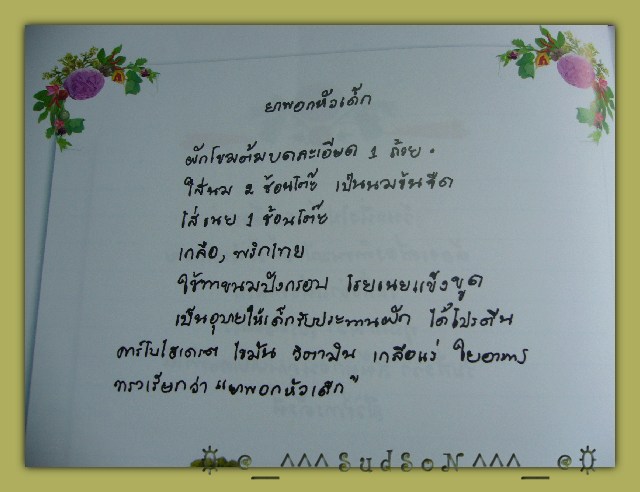 ยาพอกหัวเด็ก
ผักโขมต้มบดละเอียด 1 ถ้วย.
ใส่นม 2 ช้อนโต๊ะ เป็นนมข้นจืด
ใส่เนย 1 ช้อนโต๊ะ
เกลือ, พริกไทย
ใช้ทาขนมปังกรอบ โรยเนยแข็งขูด
เป็นอุบายให้เด็กรับประทานผัก ได้โปรตีน
คาร์โบไฮเดรต ไขมัน วิตามิน เกลือแร่ ใยอาหาร
เราเรียกว่า "ยาพอกหัวเด็ก"
e_^^^SudSoN^^^_e